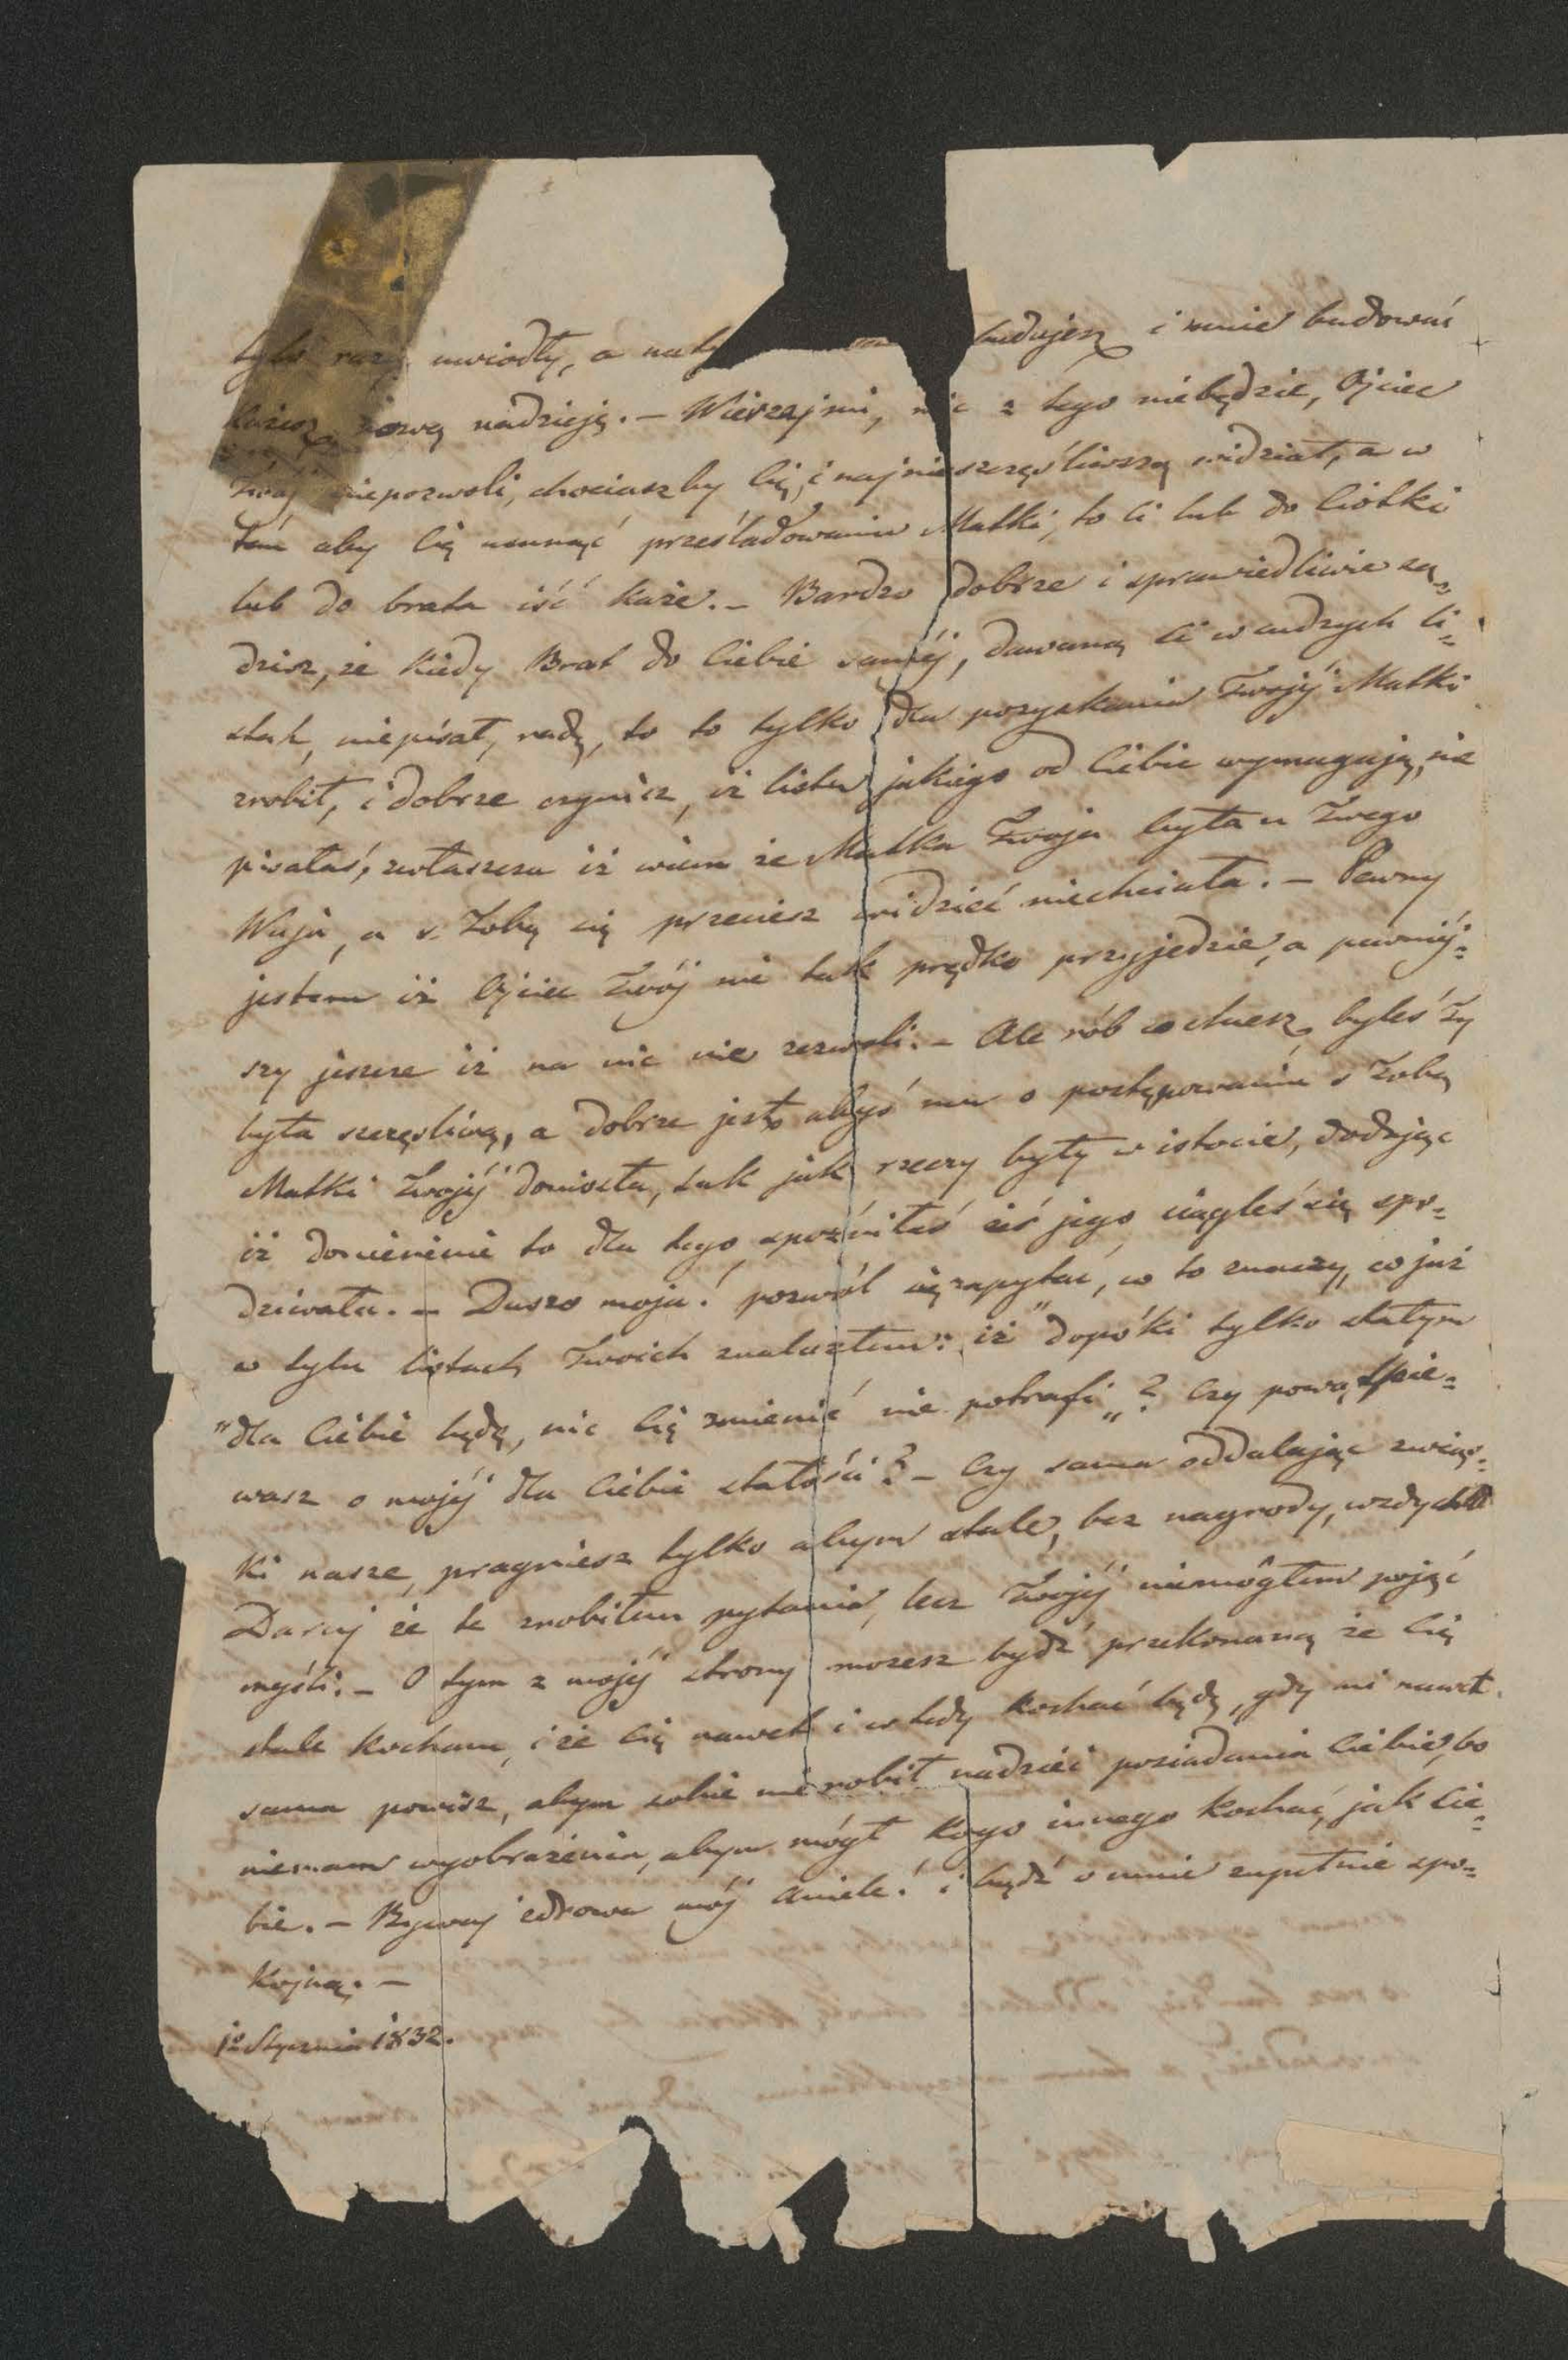 tylo razy uwiodły, a na budujesz i mnie budować
każesz nową nadzieję. – Wierzaj mi, nic z tego niebędzie, Ojciec
Twój niepozwoli, chociaszby Cię i najnieszczęśliwszą widział, a w
tém aby Cię usunąć prześladowaniu Matki, to Ci lub do Ciotki
lub do brata iść każe. – Bardzo dobrze i sprawiedliwie są„
dzisz, że kiedy Brat do Ciebie saméj, dawaną Ci w cudzych li„
stach, niepisał, radę, to to tylko dla pozyskania Twojéj Matki
zrobił, i dobrze czynisz, iż listu jakiego od Ciebie wymagają, nie
pisałaś, zwłaszcza iż wiem że Matka Twoja była u Twego
Wuja, a z Tobą się przeciesz widzieć niechciała. – Pewny
jestem iż Ojciec Twój nie tak prędko przyjedzie, a pewniéj„
szy jeszcze iż na nic nie zezwoli. – Ale rób co chcesz, byleś Ty
była szczęśliwą, a dobrze jest, abyś mu o postępowaniu z Tobą
Matki Twojéj doniosła, tak jak rzeczy były w istocie, dodając
iż doniesienie to dla tego spóźniłaś iś jego ciągleś się spo„
dziwała. – Duszo moja! pozwól się zapytać, co to znaczy, co już
w tylu listach Twoich znalazłem: iż "dopóki tylko stałym
"dla Ciebie będę, nic Cię zmienić nie potrafi„? Czy powątpie„
wasz o mojéj dla Ciebie stałości? – Czy sama oddalając związ„
ki nasze, pragniesz tylko abym stale, bez nagrody, wzdychał
Daruj że te zrobiłem pytania, lecz Twojéj niemógłem pojąć
myśli. – O tym z mojéj strony możesz bydź przekonaną że Cię
stale kocham, i że Cię nawet i wtedy kochać będę, gdy mi nawet
sama powisz, abym sobie nierobił nadziei posiadania Ciebie, bo
niemam wyobrażenia, abym mógł kogo innego kochać, jak Cie„
bie. – Bywaj zdrowa mój Aniele! i bądź o mnie zupełnie spo„
kojną. –
1º Stycznia 1832.